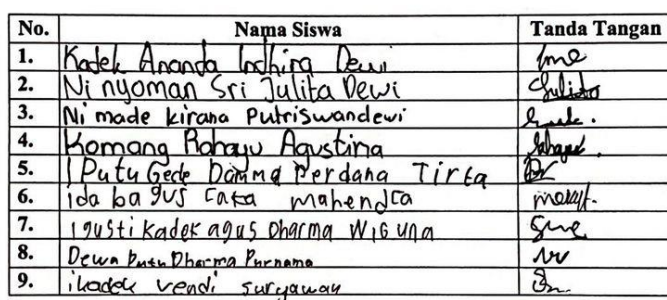 No. Nama Siswa Tanda Tangan
1. Kadek Ananda Indhira Dewi
2. Ni nyoman Sri Julita Dewi Julita
3. Ni made kirana Putriswandewi
4. Komang Rahayu Agustina
5. I Putu Gede Damma Perdana Tirta
6. ida bagus caka mahendra
7. I gusti kadek agus Dharma WIGUNA
8. Dewa Putu Dharma Purnama
9. i kadek vendi suryawan